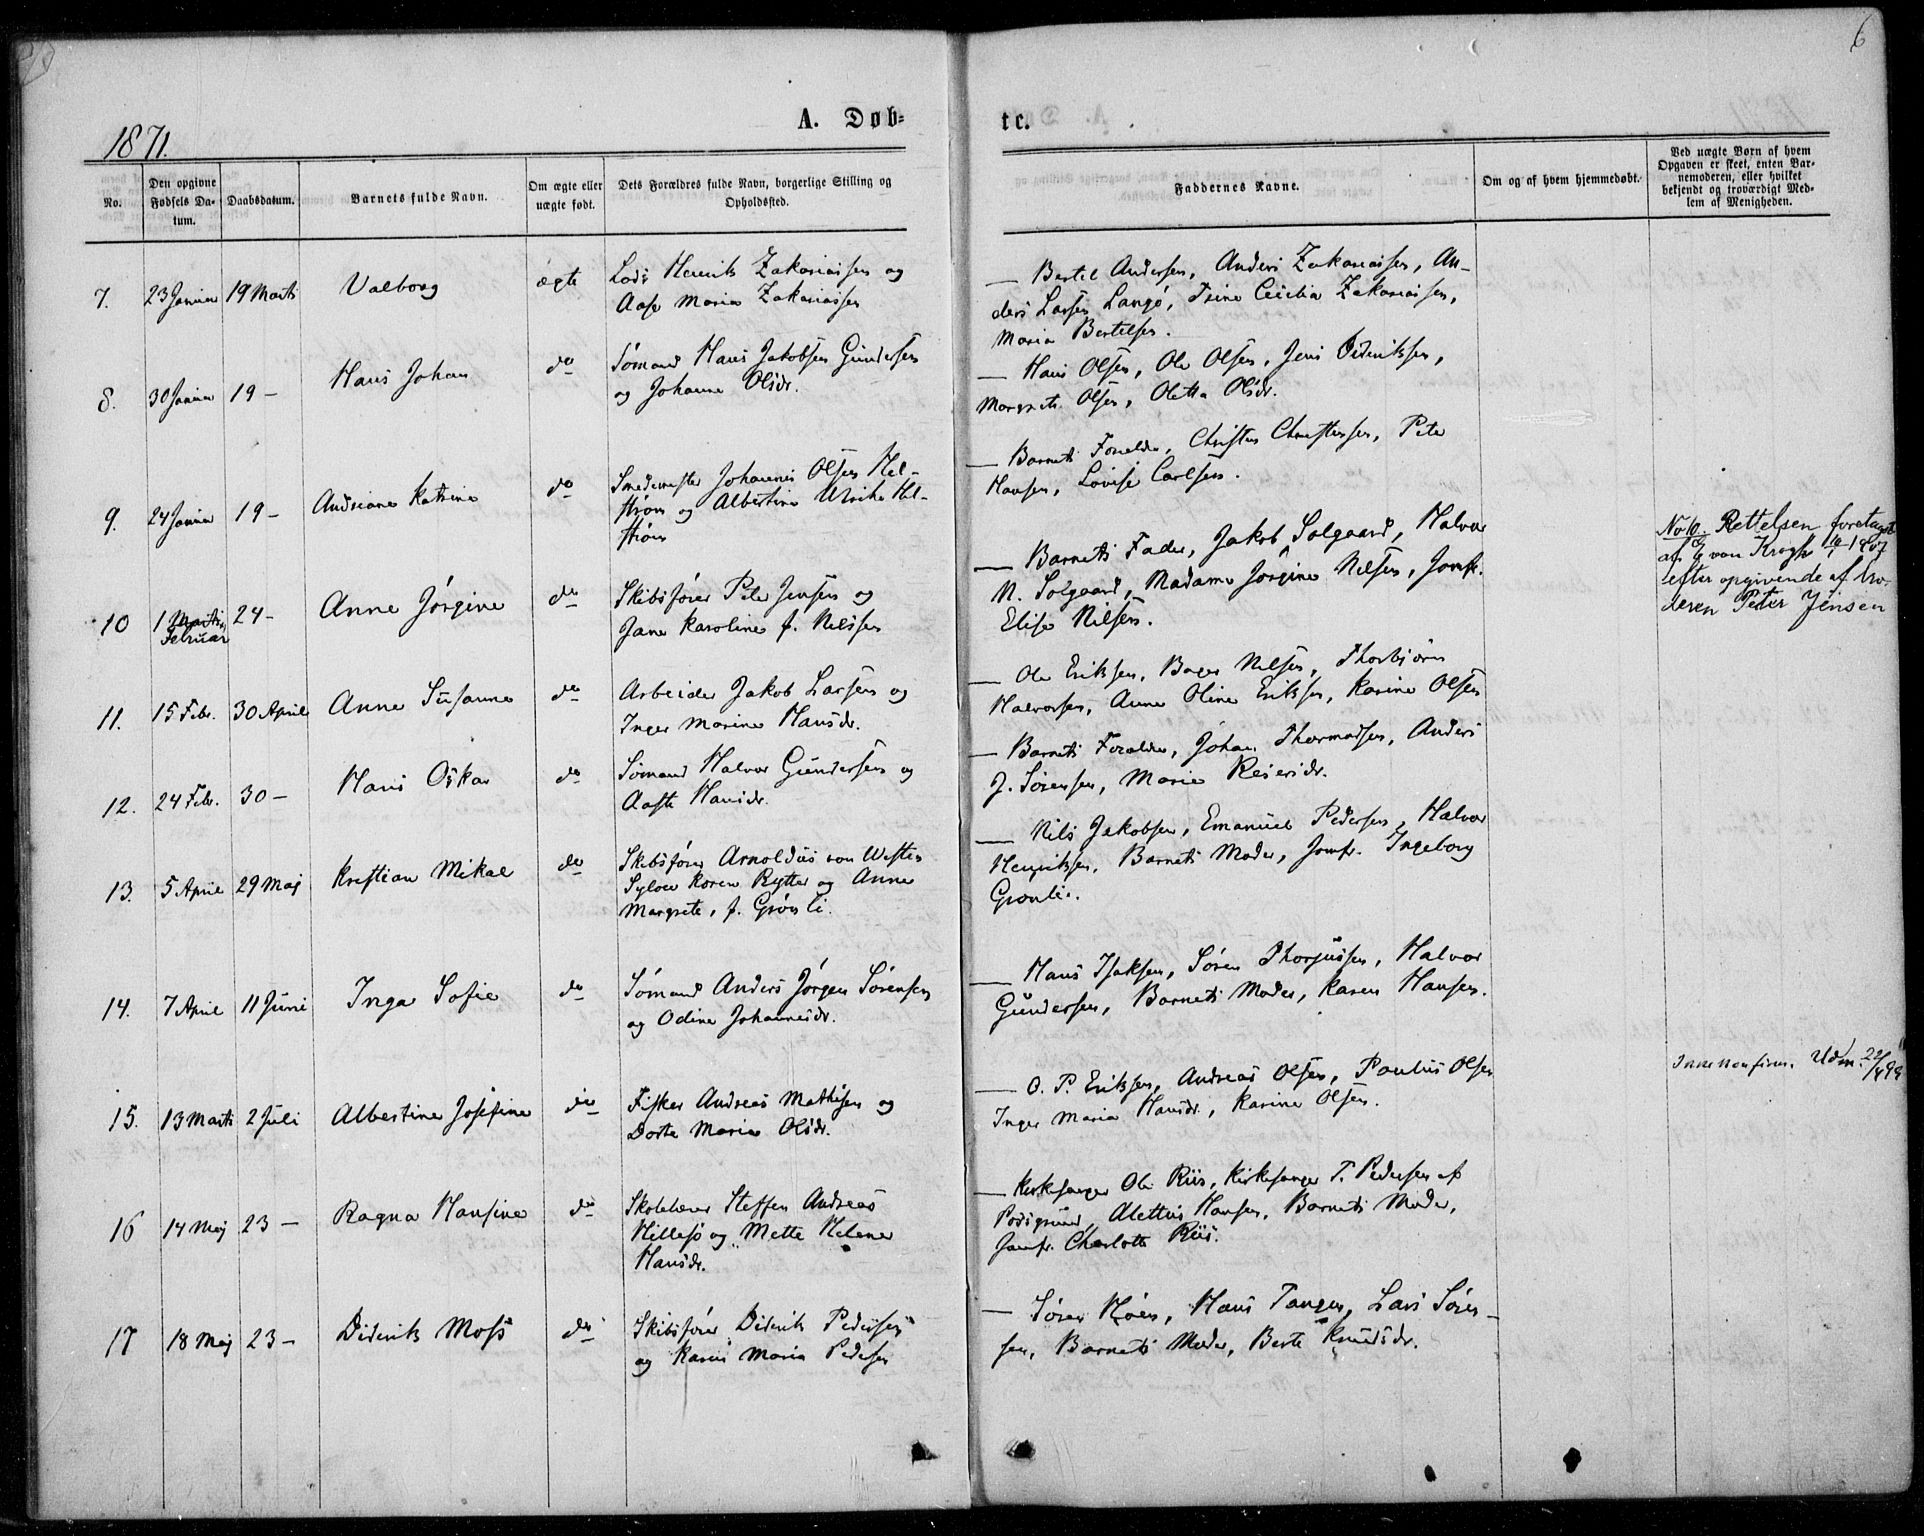 6
1871.
A. Døb-
te.
No.
Den opgivne
Fødsels Da-
tum.
Daabsdatum.
Barnets fulde Navn.
Om ægte eller
uægte født.
Dets Forældres fulde Navn, borgerlige Stilling og
Opholdssted.
Faddernes Navne.
Om og af hvem hjemmedøbt.
Ved uægte Børn af hvem
Opgaven er skeet, enten Bar-
nemoderen, eller hvilket
bekjendt og troværdigt Med-
lem af Menigheden.
7. 23 Januar 19 Marts Valborg ægte
Lods Henrik Zakariassen og
Aase Maria Zakariassen
— Bertel Andersen, Anders Zakariassen, An-
ders Larsen Langø, Trine Cecilia Zakariassen,
Maria Bertelsen.
8. 30 Januar 19 — Hans Johan do
Sømand Hans Jakobsen Gundersen
og Johanne Olsdr.
— Hans Olsen, Ole Olsen, Jens Dideriksen,
Margrete Olsen, Oletta Olsdr.
9. 24 Januar 19 — Andreane Katrine do
Smedemester Johannes Olsen Hel-
strøm og Albertine Ulrike Hel-
strøm
— Barnets Forældre, Christen Christensen, Peter
Hansen, Lovise Carlsen.
10 1 Marts Februar 24 — Anne Jørgine do
Skibsfører Peter Jensen og
Jane Karoline f. Nilsen
— Barnets Fader, Jakob Solgaard, Halvor
N. Solgaard, Madame Jørgine Nilsen, Jomfr.
Elise Nilsen.
No 10 Rettelsen foretaget
af von Krogh 1907
efter opgivende af Fa-
deren Peter Jensen
11. 15 Febr. 30 April Anne Susanne do
Arbeider Jakob Larsen og
Inger Marine Hansdr.
— Ole Eriksen, Nilsen, Thorbjørn
Halvorsen, Anne Oline Eriksen, Karine Olsen
12. 24 Febr. 30 — Hans Oskar do
Sømand Halvor Gundersen og
Aaste Hansdr.
— Barnets Forældre, Johan Thormodsen, Anders
J. Sørensen, Marie Reiersdr.
13. 5 April 29 Maj Kristian Mikal do
Skibsfører Arnoldus von Westen
Sylow Koren Rytter og Anne
Margrete, f. Grønli.
— Nils Jakobsen, Emanuel Pedersen, Halvor
Henriksen, Barnets Moder, Jomfr. Ingeborg
Gronli.
14. 7 April 11 Juni Inga Sofie do
Sømand Anders Jørgen Sørensen
og Odine Johannesdr.
— Hans Isaksen, Søren Thorjussen, Halvor
Gundersen, Barnets Moder, Karen Hansen.
15. 13 Marts 2 Juli Albertine Josefine do
Fisker Andreas Mathisen og
Dorte Maria Olsdr.
— O. P. Eriksen, Andreas Olsen, Paulus Olsen
Inger Maria Hansdr., Karine Olsen.
Udm. 22/
16 14 Maj 23 — Ragna Hansine do
Skolelærer Steffen Andreas
Hillesø og Mette Helene
Hansdr.
— Kirkesanger Ole Riis, Kirkesanger T. Pedersen af
Porsgrund, Alettus Hansen, Barnets Moder,
Jomfr. Charlotte Riis.
17 18 Maj 23 — Diderik Moss do
Skibsfører Diderik Pedersen
og Karen Maria Pedersen
— Søren Høen, Hans Tangen, Lars Søren-
sen, Barnets Moder, Berte Knudsdr.